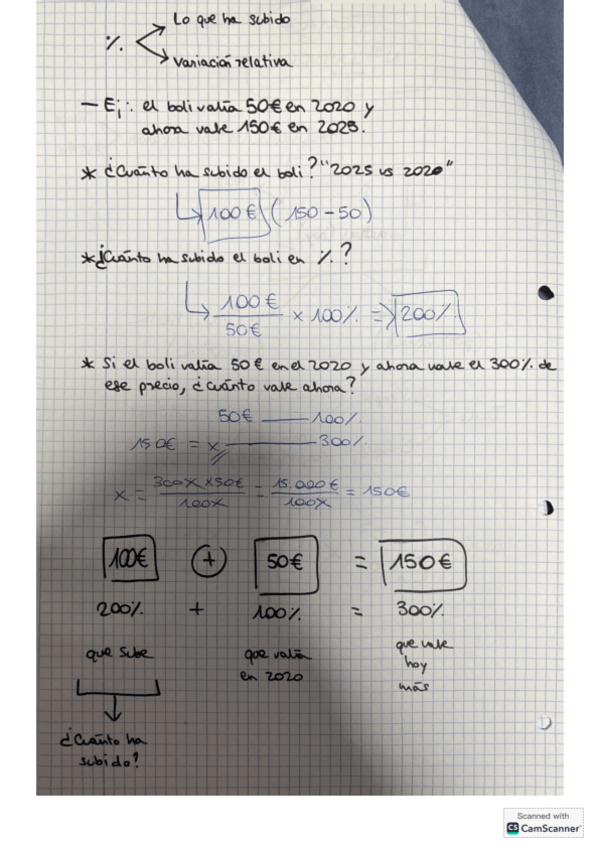 Lo que ha subido
%
Variación relativa
- Ej: el boli valía 50€ en 2020 y
ahora vale 150€ en 2025.
* ¿Cuánto ha subido el boli? "2025 vs 2020"
100€ (150-50)
* ¿Cuánto ha subido el boli en %?
100€
50€
x 100% => 200%
* Si el boli valía 50€ en el 2020 y ahora vale el 300% de
ese precio, ¿cuánto vale ahora?
50€ — 100%
150€ = x — 300%
x = 300% x 50€ / 100% = 15.000€ / 100% = 150€
100€ + 50€ = 150€
200% + 100% = 300%
que sube que valía que vale
en 2020 hoy
más
¿Cuánto ha
subido?
Scanned with
CS CamScanner